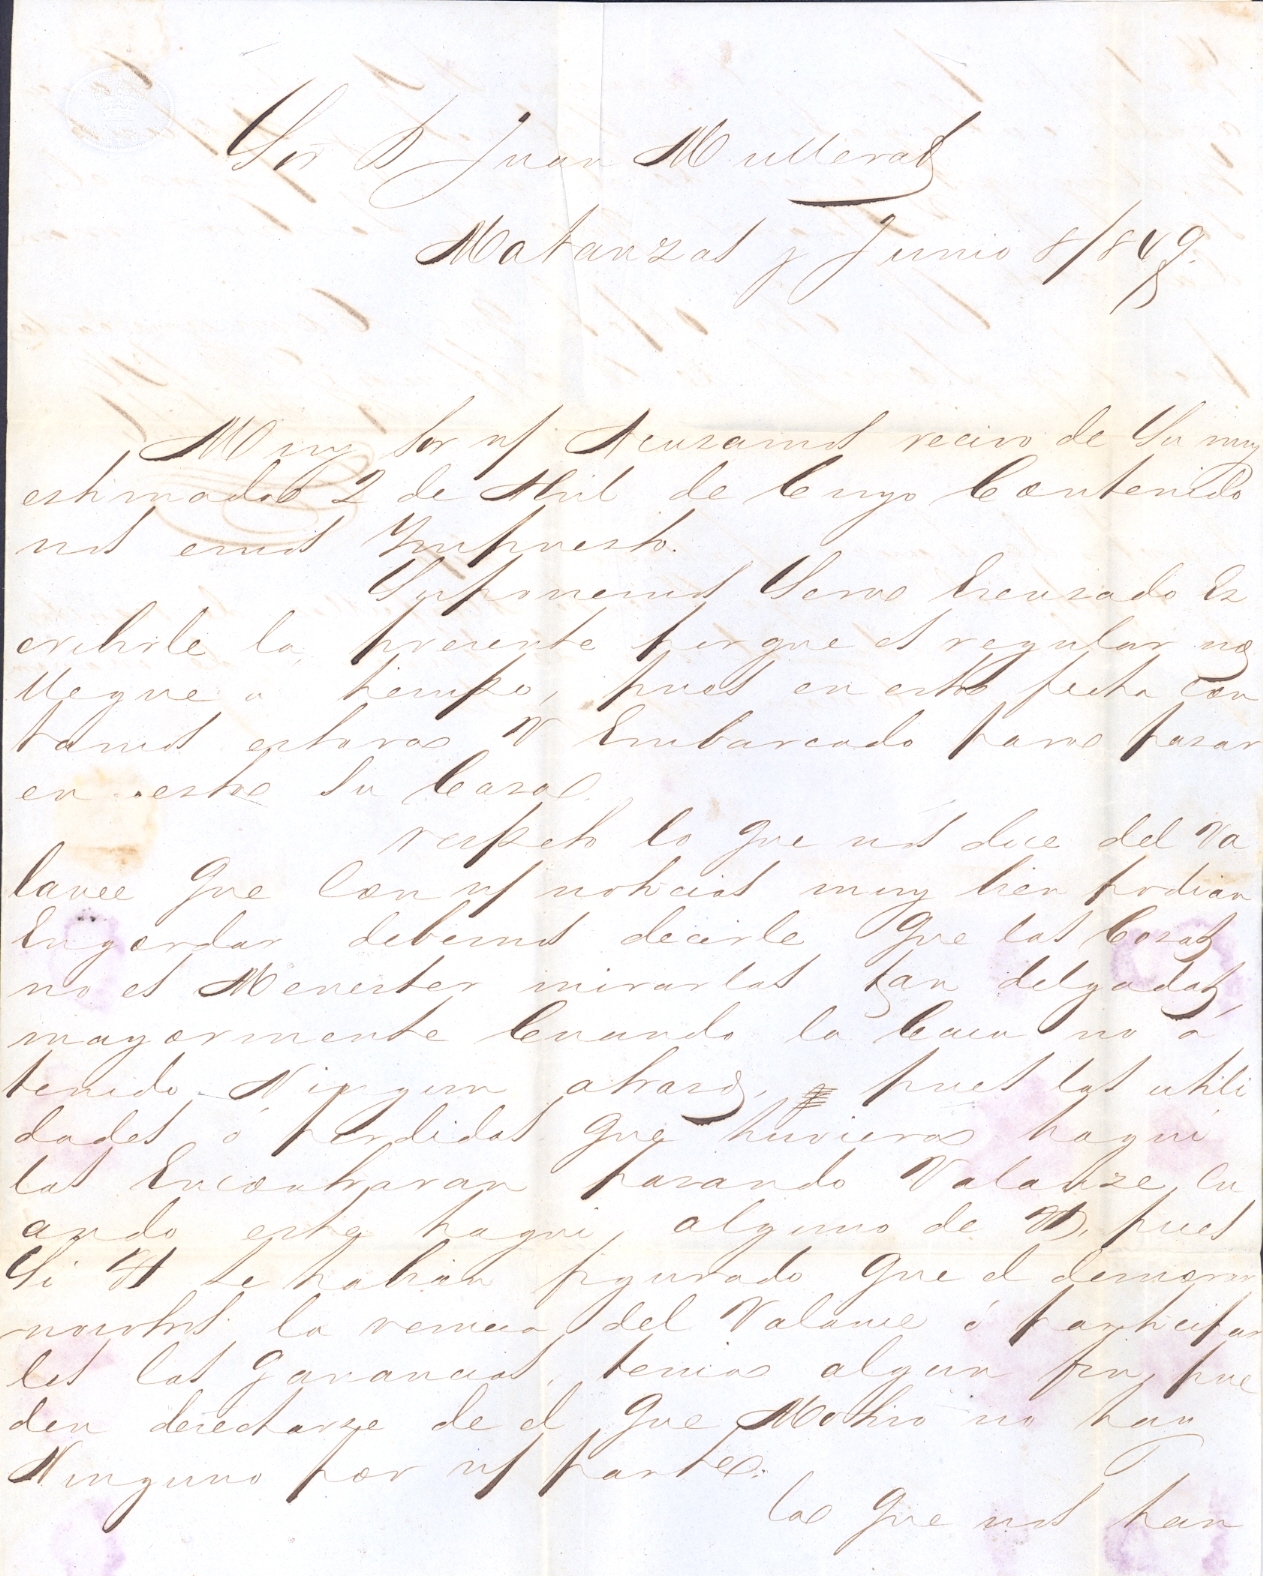 Sor D Juan Mullerat
Matanzas y Junio 8/849.
Muy Sor nt Acusamos recivo de Su muy
estimada 2 de Abril de Cuyo Contenido
nos emos Ympuesto.
Suponemos Sera Escusado Es
cribirle la presente porque es regular no
llegue a tiempo, pues en esta fecha con
tamos estara V Embarcado para pasar
en esta Su Casa
respeto lo que nos dice del Va
lance que Con nt noticias muy bien podian
Engordar debemos decirle que las Cosas
no es Menester mirarlas tan delgadas,
mayormente Cuando la Casa no á
tenido Ningun atraso, pues las utili
dades ó perdidas que huviera haqui
las Encontraran pasando Valanze Cu
ando este haqui alguno de V, pues
Si V se habian figurado que el demorar
nosotros la remesa del Valance ó participar
les las Ganancias, tenia algun fin, pue
den desecharse de el que Motivo no hay
Ninguno por nt parte.
La que nos han